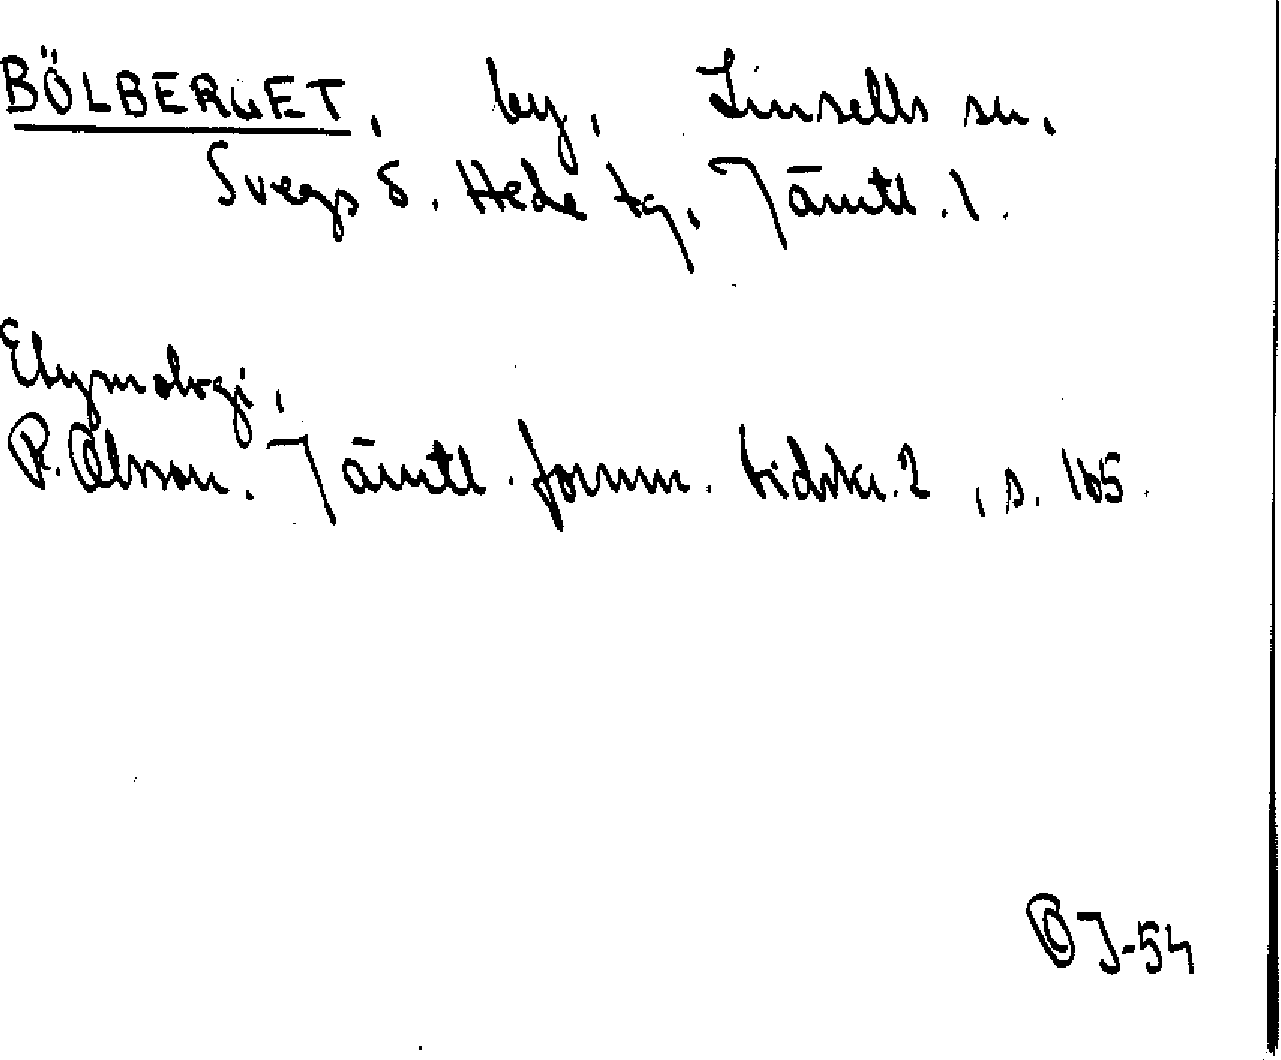 BÖLBERGET, by, Linsells sn.
Svegs o. Hede tg, Jämtl. l.
Etymologi,
P. Olsson. Jämtl. fornm. tidskr. 2, s. 165.
OJ-54